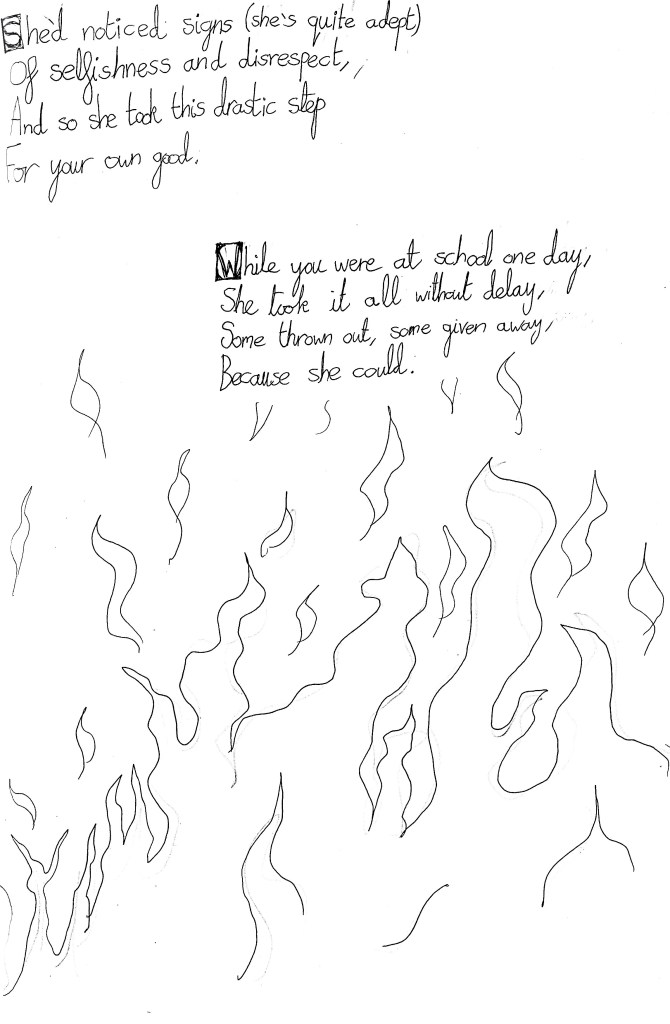 She'd noticed signs (she's quite adept)
Of selfishness and disrespect,
And so she took this drastic step
For your own good.
While you were at school one day,
She took it all without delay,
Some thrown out, some given away,
Because she could.